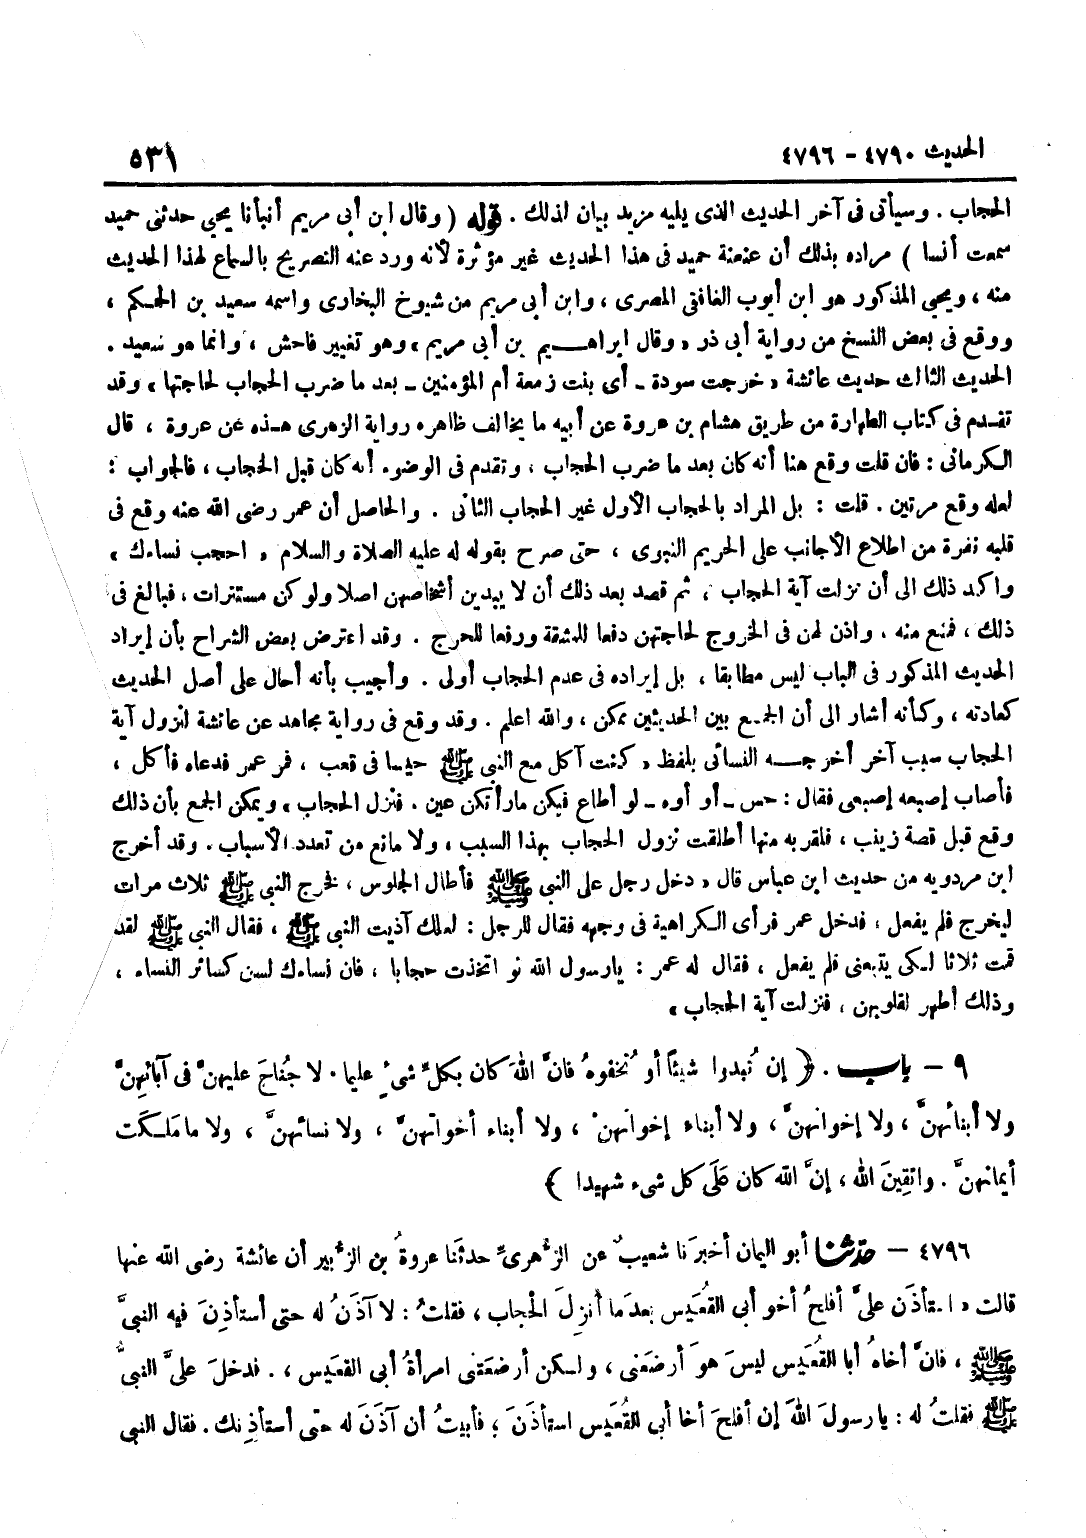 الحديث ٤٧٩٠ - ٤٧٩٦
٥٣١
الحجاب . وسيأتى فى آخر الحديث الذى يليه مزيد بيان لذلك . قوله ( وقال ابن أبى مريم أنبأنا يحيى حدثنى حميد
سمعت أنسا ) مراده بذلك أن عنعنة حميد فى هذا الحديث غير مؤثرة لأنه ورد عنه التصريح بالسماع لهذا الحديث
منه ، ويحيى المذكور هو ابن أيوب الغافقى المصرى ، وابن أبى مريم من شيوخ البخارى واسمه سعيد بن الحكم ،
ووقع فى بعض النسخ من رواية أبى ذر « وقال ابراهيم بن أبى مريم » وهو تغيير فاحش ، وانما هو سعيد .
الحديث الثالث حديث عائشة « خرجت سودة - أى بنت زمعة أم المؤمنين - بعد ما ضرب الحجاب لحاجتها » وقد
تقدم فى كتاب الطهارة من طريق هشام بن عروة عن أبيه ما يخالف ظاهره رواية الزهرى هذه عن عروة ، قال
الكرمانى : فان قلت وقع هنا أنه كان بعد ما ضرب الحجاب ، وتقدم فى الوضوء أنه كان قبل الحجاب ، فالجواب :
لعله وقع مرتين . قلت : بل المراد بالحجاب الأول غير الحجاب الثانى . والحاصل أن عمر رضى الله عنه وقع فى
قلبه نفرة من اطلاع الأجانب على الحريم النبوى ، حتى صرح بقوله له عليه الصلاة والسلام « احجب نساءك »
واكد ذلك الى أن نزلت آية الحجاب ، ثم قصد بعد ذلك أن لا يبدين أشخاصهن اصلا ولو كن مستترات ، فبالغ فى
ذلك ، فمنع منه ، واذن لهن فى الخروج لحاجتهن دفعا للمشقة ورفعا للحرج . وقد اعترض بعض الشراح بأن إيراد
الحديث المذكور فى الباب ليس مطابقا ، بل إيراده فى عدم الحجاب أولى . وأجيب بأنه أحال على أصل الحديث
كعادته ، وكأنه أشار الى أن الجمع بين الحديثين ممكن ، والله اعلم . وقد وقع فى رواية مجاهد عن عائشة لنزول آية
الحجاب سبب آخر أخرجه النسائى بلفظ « كنت آكل مع النبى ﷺ حيسا فى قعب ، فمر عمر فدعاه فأكل ،
فأصاب إصبعه إصبعى فقال : حس - أو أوه - لو أطاع فيكن ما رأتكن عين . فنزل الحجاب » ويمكن الجمع بأن ذلك
وقع قبل قصة زينب ، فلقربه منها أطلقت نزول الحجاب بهذا السبب ، ولا مانع من تعدد الأسباب . وقد أخرج
ابن مردويه من حديث ابن عباس قال « دخل رجل على النبى ﷺ فأطال الجلوس ، فخرج النبى ﷺ ثلاث مرات
ليخرج فلم يفعل ، فدخل عمر فرأى الكراهية فى وجهه فقال للرجل : لعلك آذيت النبى ﷺ ، فقال النبى ﷺ لقد
قمت ثلاثا لكى يتبعنى فلم يفعل ، فقال له عمر : يا رسول الله لو اتخذت حجابا ، فان نساءك لسن كسائر النساء ،
وذلك أطهر لقلوبهن ، فنزلت آية الحجاب »
٩ - باب . ﴿ إن تُبدوا شيئاً أو تُخفوهُ فانَّ اللهَ كان بكلِّ شىءٍ عليما . لا جُناحَ عليهنَّ فى آبائهنَّ
ولا أبنائهنَّ ، ولا إخوانهنَّ ، ولا أبناء إخوانهنْ ، ولا أبناء أخواتهنَّ ، ولا نسائهنَّ ، ولا ما ملَكَت
أيمانهنَّ . واتقِينَ الله ، إنَّ الله كان عَلَى كل شىء شهيدا ﴾
٤٧٩٦ - حدّثنا أبو اليمان أخبرَنا شعيبٌ عن الزُّهرىِّ حدثَنا عروةُ بن الزُّبير أن عائشة رضى الله عنها
قالت « استأذَن علىَّ أفلحُ أخو أبى القُعَيس بعدَ ما أُنزِلَ الحجاب ، فقلتُ : لا آذَنُ له حتى أستأذِنَ فيه النبىَّ
ﷺ ، فانَّ أخاهُ أبا القُعَيس ليسَ هوَ أرضعَنى ، ولكن أرضعَتنى امرأةُ أبى القعَيس ، . فدخلَ علىَّ النبىُّ
ﷺ فقلتُ له : يا رسولَ اللهَ إن أفلحَ أخا أبى القُعَيس استأذَنَ ؛ فأبيتُ أن آذَنَ له حتّى أستأذِنك . فقال النبى